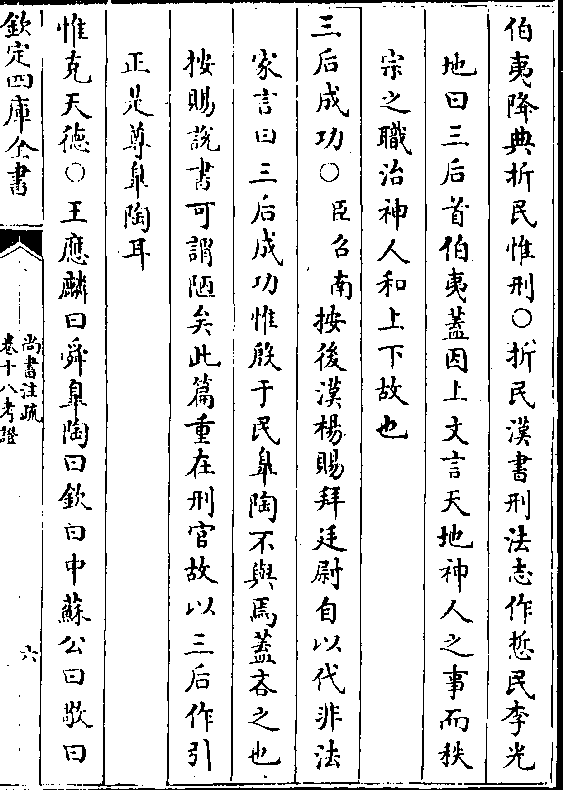 伯夷降典折民惟刑○折民漢書刑法志作悊民李光
地曰三后首伯夷蓋因上文言天地神人之事而秩
宗之職治神人和上下故也
三后成功○臣召南按後漢楊賜拜廷尉自以代非法
家言曰三后成功惟殷于民臯陶不與焉蓋吝之也
按賜說書可謂陋矣此篇重在刑官故以三后作引
正是尊臯陶耳
惟克天德○王應麟曰舜臯陶曰欽曰中蘇公曰敬曰
欽定四庫全書
尚書注疏
卷十八考證
六